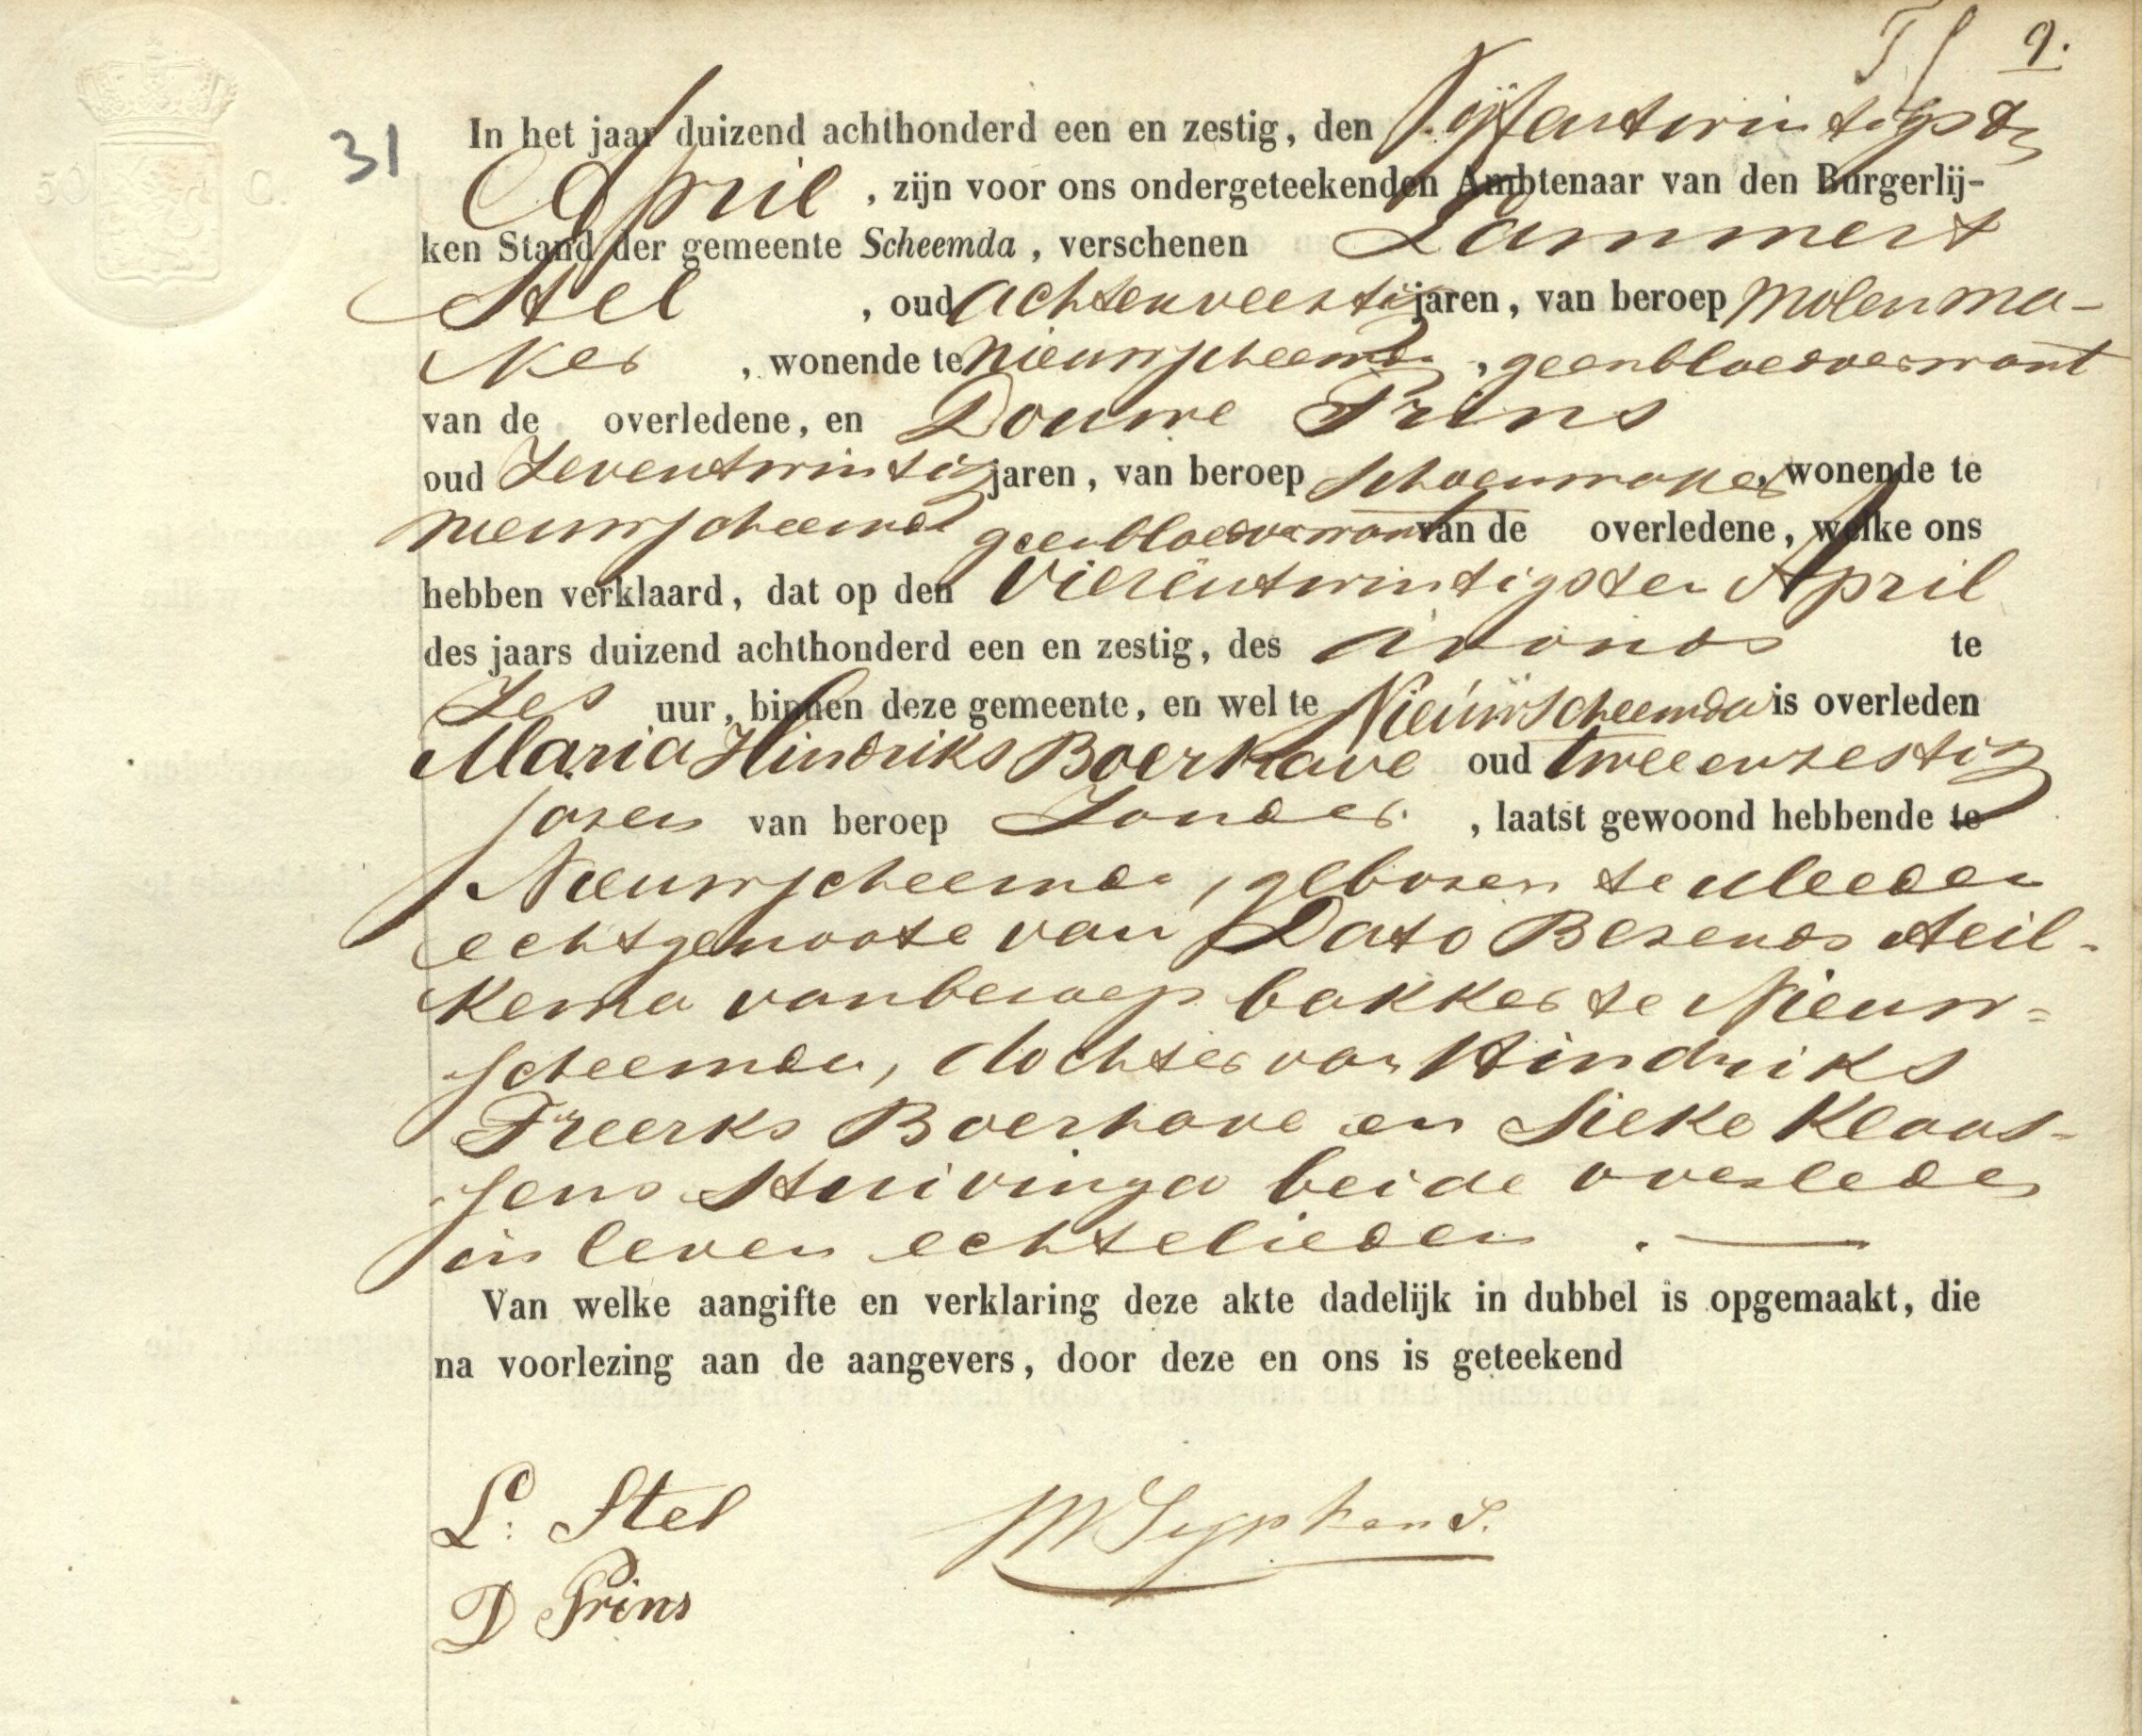 9.
50 C.
31 In het jaar duizend achthonderd een en zestig, den Vijfentwintigsten
April , zijn voor ons ondergeteekenden Ambtenaar van den Burgerlij-
ken Stand der gemeente Scheemda, verschenen Lammert
Stel , oud achtenveertig jaren, van beroep molenma-
ker , wonende te Nieuwscheemda , geenbloedverwant
van de overledene, en Douwe Prins
oud Zeventwintig jaren, van beroep schoenmaker, wonende te
Nieuwscheemda geenbloedverwant van de overledene, welke ons
hebben verklaard, dat op den Vierentwintigsten April
des jaars duizend achthonderd een en zestig, des avonds te
Zes uur, binnen deze gemeente, en wel te Nieuwscheemda is overleden
Maria Hindriks Boerhave oud tweeenzestig
jaren van beroep Zonder , laatst gewoond hebbende te
Nieuwscheemda, geboren te Meeden
echtgenoote van Dato Berends Heil-
kema van beroep bakker te Nieuw=
scheemda, dochter van Hindriks
Freerks Boerhave en Sieke Klaas-
sens Stuivinga beide overleden
in leven echtelieden.
Van welke aangifte en verklaring deze akte dadelijk in dubbel is opgemaakt, die
na voorlezing aan de aangevers, door deze en ons is geteekend
L. Stel
D Prins